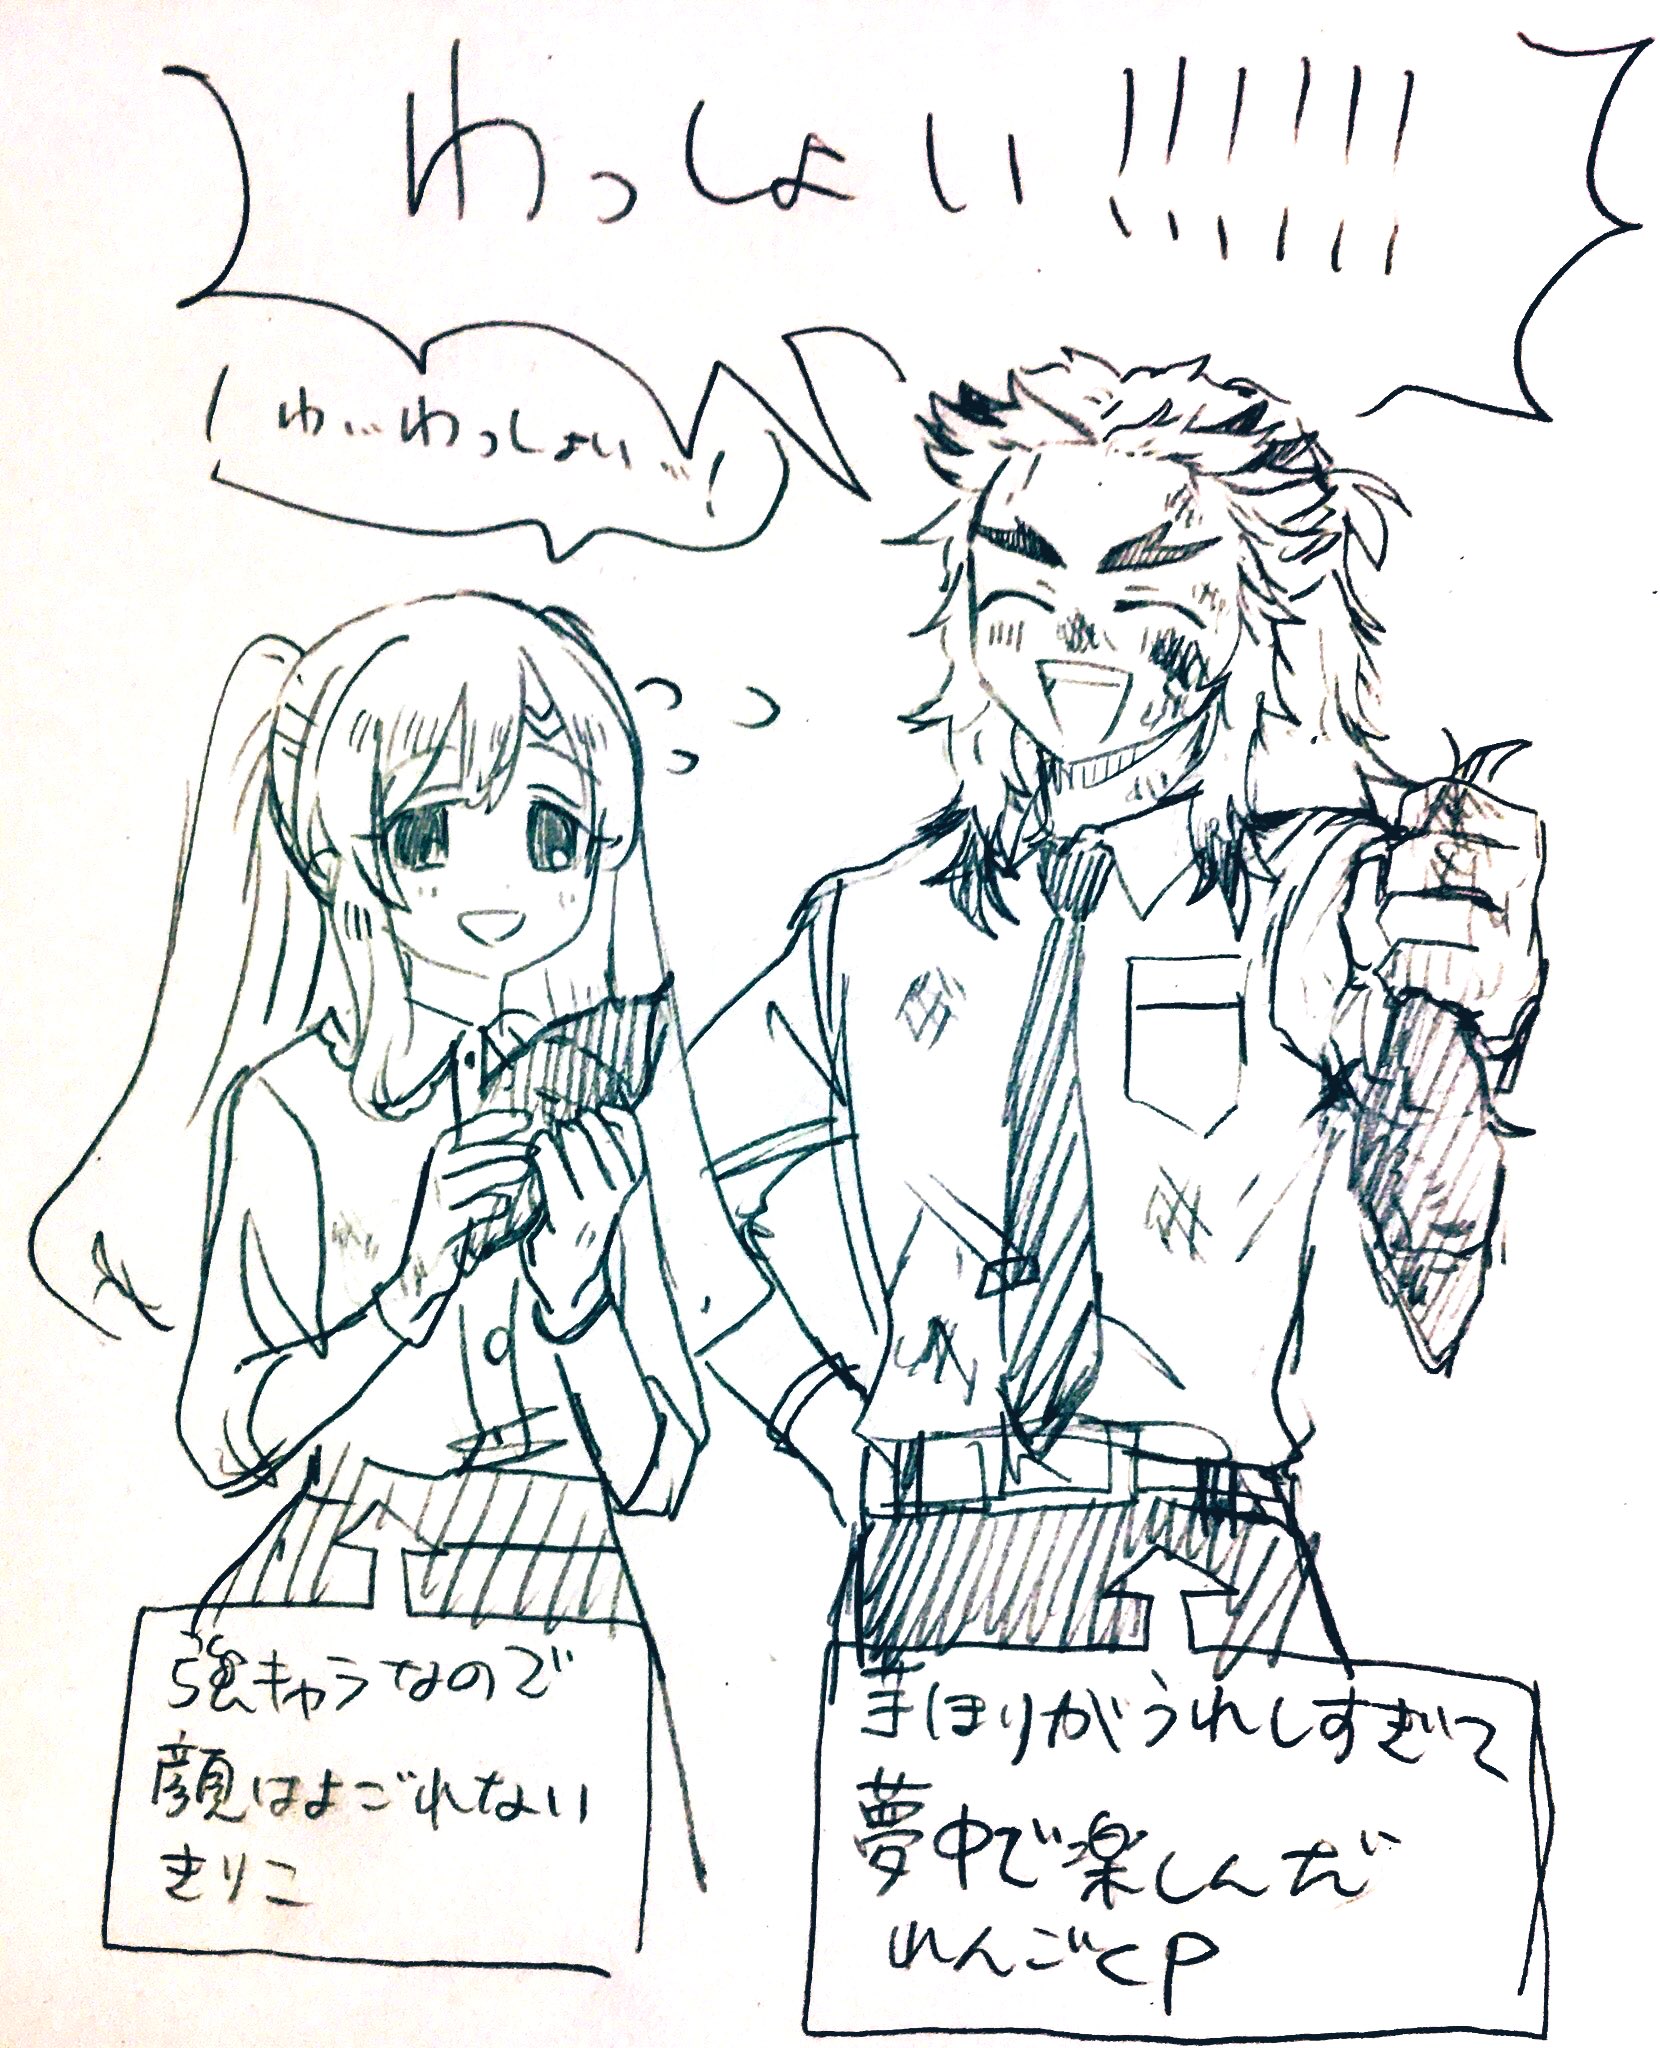 わっしょい!!!!!!
わ…わっしょい…!
強キャラなので
顔はよごれない
きりこ
芋ほりがうれしすぎて
夢中で楽しんだ
れんごCP